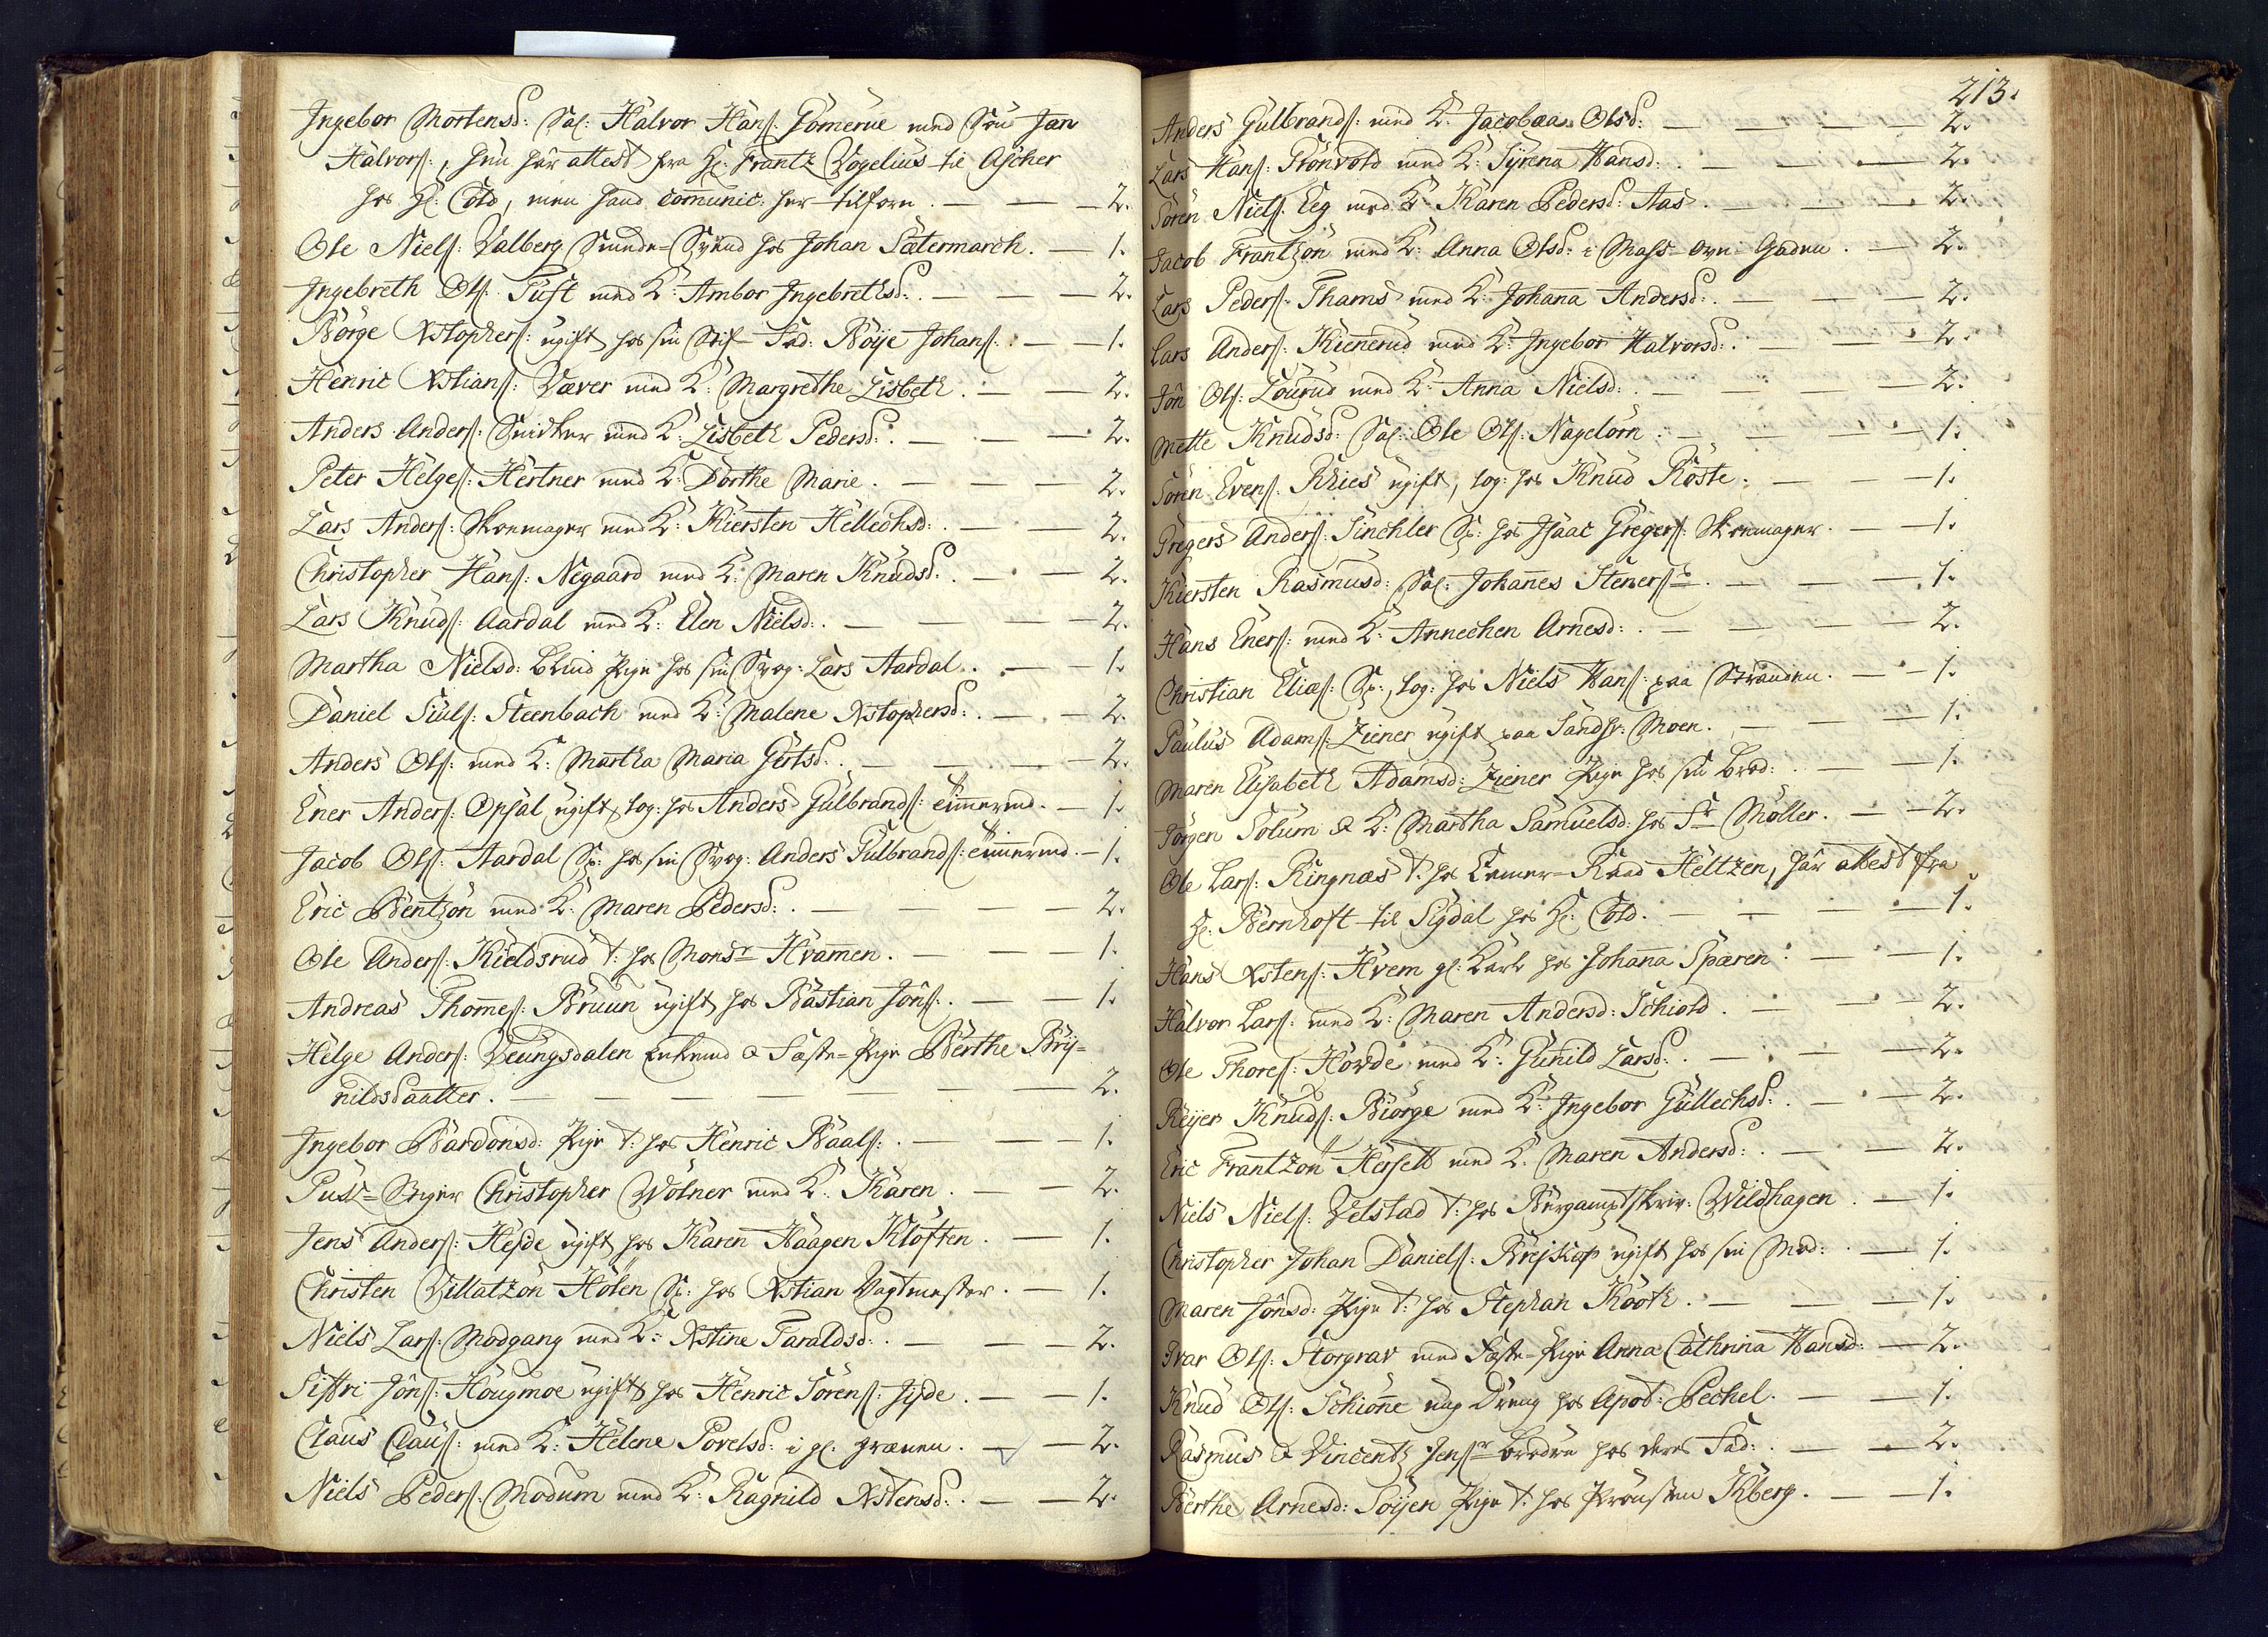 Ingebor Mortensd: Sal: Halvor Hans: Gomerue med Søn Jan
Halvors:, hun har attest fra Hr: Frantz Vogelius til Ascher
hos Hr: Cold, men hand communic: her tilforn. — — — 2.
Ole Niels: Valberg Smede-Svend hos Johan Sætermarch. — 1.
Ingebreth Ols: Tuft med K: Ambor Ingebrethsd: — — — 2.
Børge Xstophers: ugift hos sin Stif-Fad: Böije Johans: — — 1.
Henric Xstians: Væver med K: Margrethe Lisbeth. — — 2.
Anders Anders: Snidker med K: Lisbeth Pedersd: — — 2.
Peter Helges: Hertner med K: Dorthe Marie. — — — 2.
Lars Anders: Skoemager med K: Kiersten Hellechsd: — — 2.
Christopher Hans: Negaard med K: Maren Knudsd: — — 2.
Lars Knuds: Aardal med K: Elen Nielsd: — — — 2.
Martha Nielsd: blind Pige hos sin Svog: Lars Aardal. — — 1.
Daniel Siuls: Steenbach med K: Malene Xstophersd: — — 2.
Anders Ols: med K: Martha Maria Gertsd: — — — 2.
Ener Anders: Opsal ugift, log: hos Anders Gulbrands: Timmermd. — 1.
Jacob Ols: Aardal Sp: hos sin Svog: Anders Gulbrands: Timmermd. — 1.
Eric Bentzön med K: Maren Pedersd: — — — 2.
Ole Anders: Kieldsrud t: hos Monsr Hvamen. — — — 1.
Andreas Thomes: Bruun ugift hos Bastian Jöns: — — 1.
Helge Anders: Veungsdalen Enkemd & Fæste-Pige Berthe Bry=
nildsdaatter. — — — — — 2.
Ingebor Bardonsd: Pige t: hos Henric Baals: — — — 1.
Puk-Stiger Christopher Wolner med K: Karen. — — 2.
Jens Anders: Hejde ugift hos Karen Haagen Klöften. — — 1.
Christen Villatzön Holen Sp: hos Xstian Vagtmester. — 1.
Niels Lars: Modgang med K: Xstine Taraldsd: — — — 2.
Siffri Jöns: Hougmoe ugift hos Henric Sörens: Jyde. — — 1.
Claus Claus: med K: Helene Povelsd: i gl: græven. — — 2.
Niels Peders: Modum med K: Ragnild Xstensd: — — 2.
213.
Anders Gulbrands: med K: Jacobæa Olsd: — — — 2.
Lars Hans: Grönvold med K: Syrena Hansd: — — — 2.
Sören Niels: Eeg med K: Karen Pedersd: Aas. — — — 2.
Jacob Frantzön med K: Anna Olsd: i Mass-ovn-Gaden. — 2.
Lars Peders: Thams med K: Johana Andersd: — — — 2.
Lars Anders: Kienerud med K: Ingebor Halvorsd: — — 2.
Jön Ols: Lourud med K: Anna Nielsd: — — — 2.
Mette Knudsd: Sal: Ole Ols: Nagelörn. — — — 1.
Sören Evens: Rhies ugift, log: hos Knud Röste. — — — 1.
Gregers Anders: Sinchler Sp: hos Isaac Gregers: Skoemager. — — 1.
Kiersten Rasmusd: Sal: Johanes Steners: — — — 1.
Hans Eners: med K: Annechen Arnesd: — — — 2.
Christian Elias: Sp:, log: hos Niels Hans: paa Stranden. — — 1.
Paulus Adams: Ziener ugift paa Sandsv: Moen. — — — 1.
Maren Elisabeth Adamsd: Ziener Pige hos sin Brod: — — 1.
Jörgen Solum & K: Martha Samuelsd: hos Sr Möller. — — 2.
Ole Lars: Ringnæs t: hos Camer-Raad Heltzen, har attest fra
Hr: Bernhoft til Sigdal hos Hr: Cold. — — — 1.
Hans Xstens: Hvem gl: Karl hos Johana Sparen: — — 1.
Halvor Lars: med K: Maren Andersd: Schiold. — — 2.
Ole Thores: Hovde med K: Gunild Larsd: — — — 2.
Reijer Knuds: Biorge med K: Ingebor Gullechsd: — — 2.
Eric Frantzön Hersett med K: Maren Andersd: — — 2.
Niels Niels: Velstad t: hos Bergamptskriv: Wildhagen. — 1.
Christopher Johan Daniels: Brejskop ugift hos sin Mod: — 1.
Maren Jönsd: Pige t: hos Stephan Kooth. — — — 1.
Ivar Ols: Storgrav med Fæste-Pige Anna Cathrina Hansd: — 2.
Knud Ols: Schiöne ung Dreng hos Apot: Pechel. — — 1.
Rasmus & Vincentz Jensr brødre hos deres Fad: — — 2.
Berthe Arnesd: Soijen Pige t: hos Provsten Ikberg. — — 1.